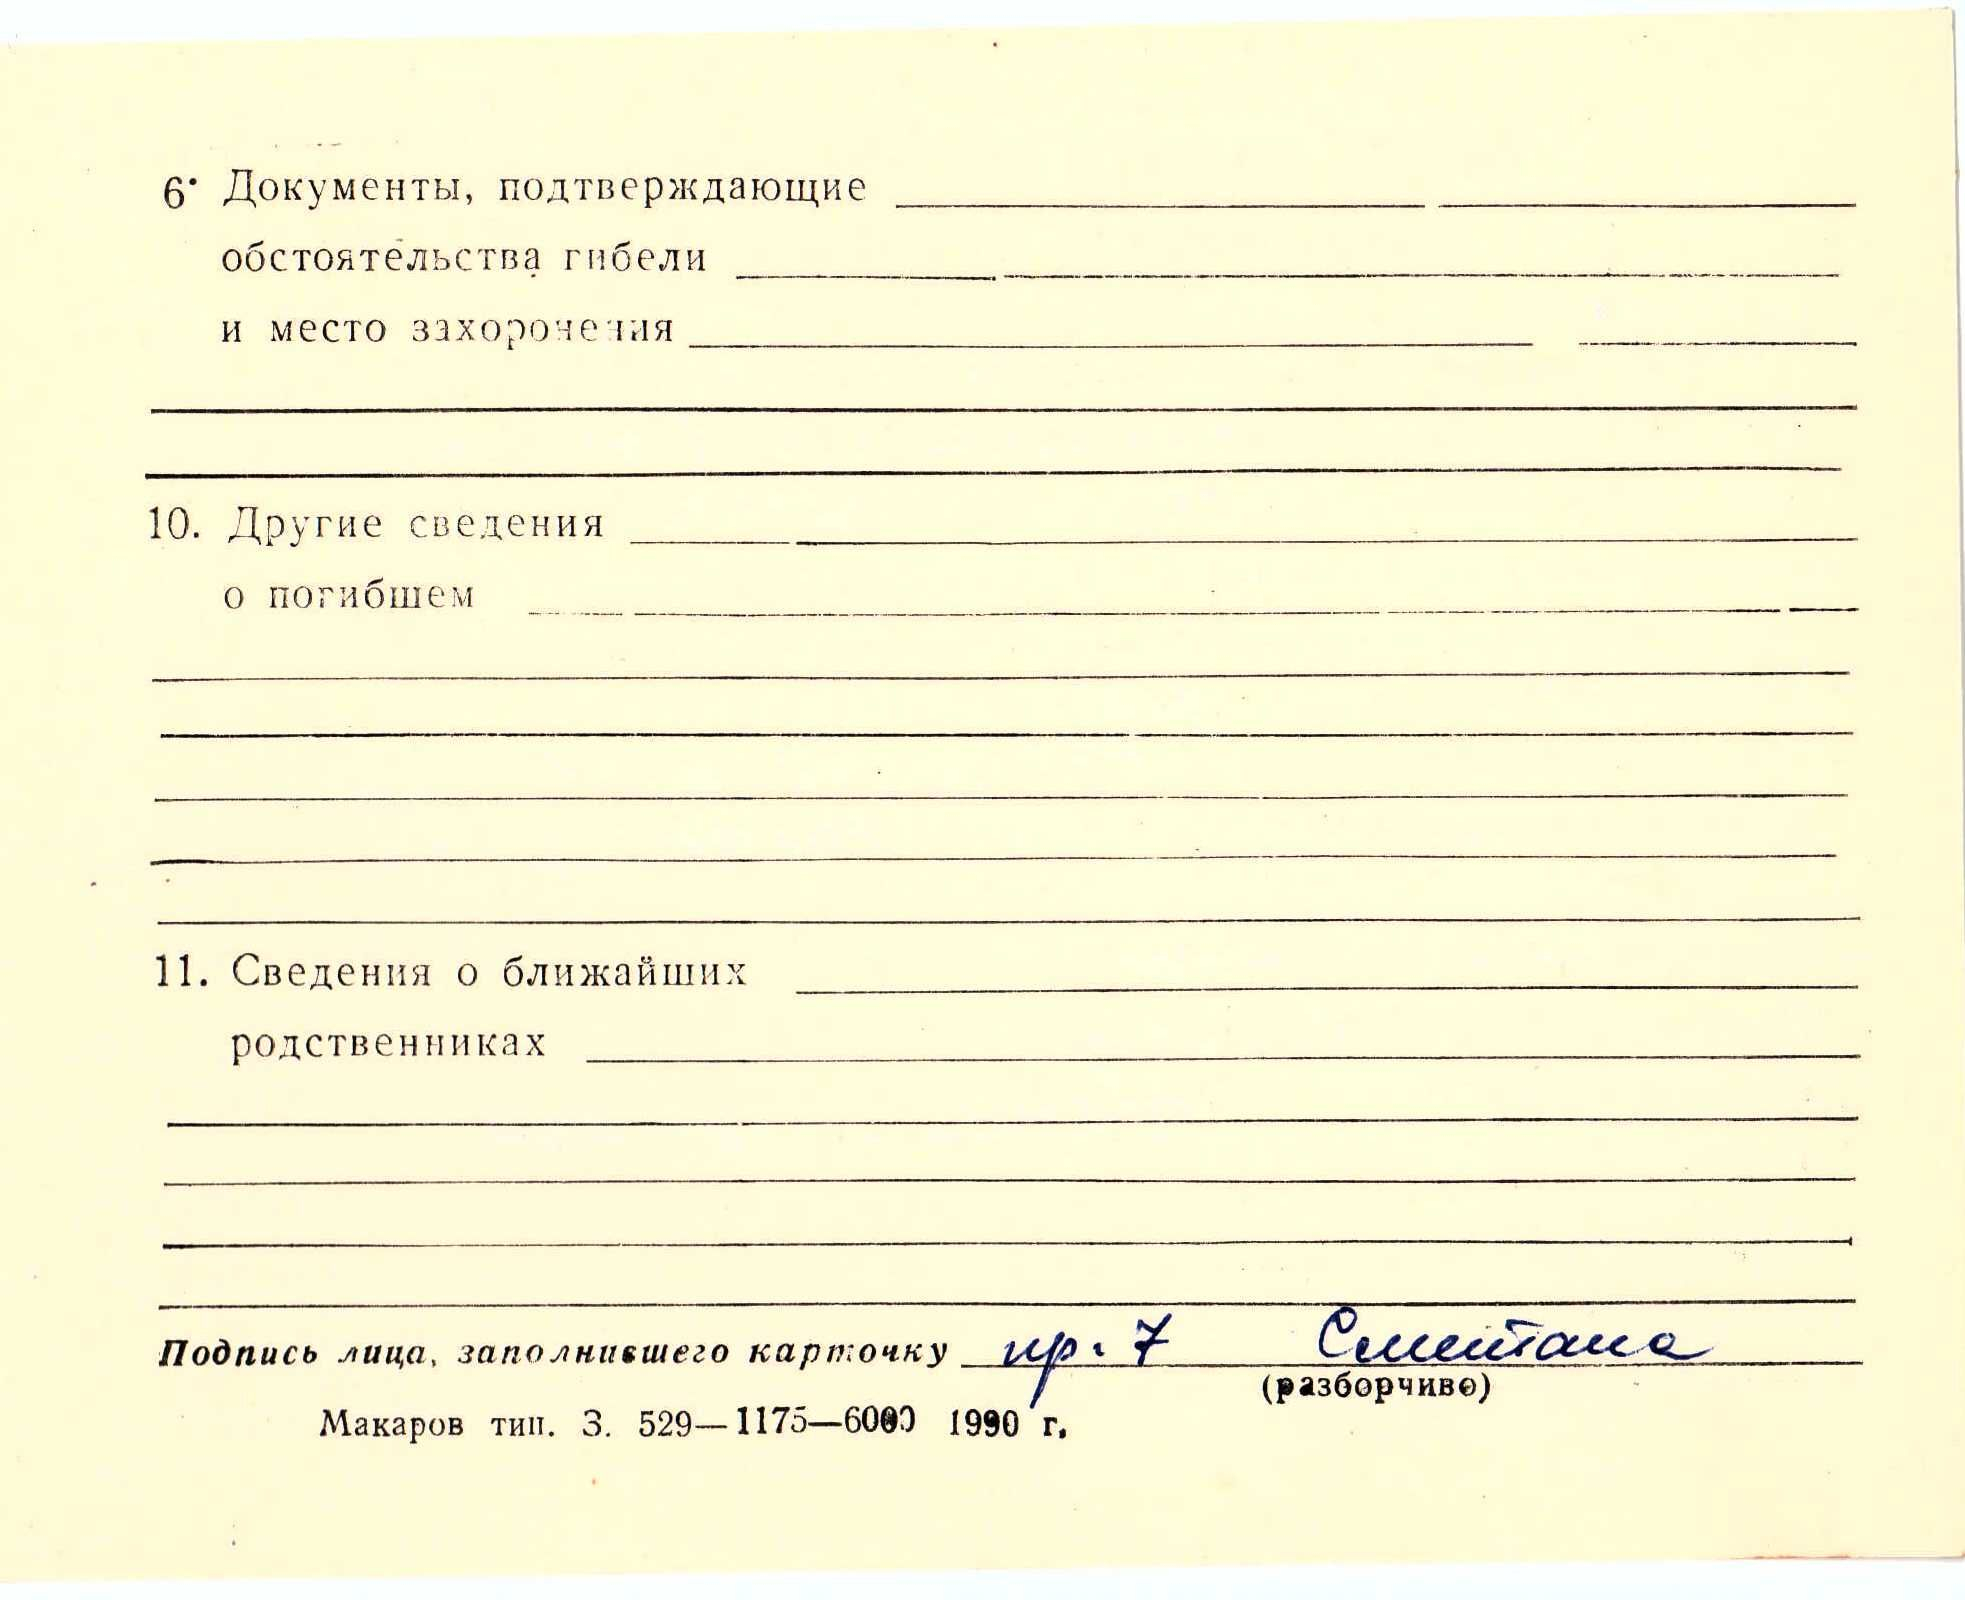 6. Документы, подтверждающие
обстоятельства гибели
и место захоронения
10. Другие сведения
о погибшем
11. Сведения о ближайших
родственниках
Подпись лица, заполнившего карточку пр. 7 Сметана
(разборчиво)
Макаров тип. З. 529—1175—6000 1990 г.